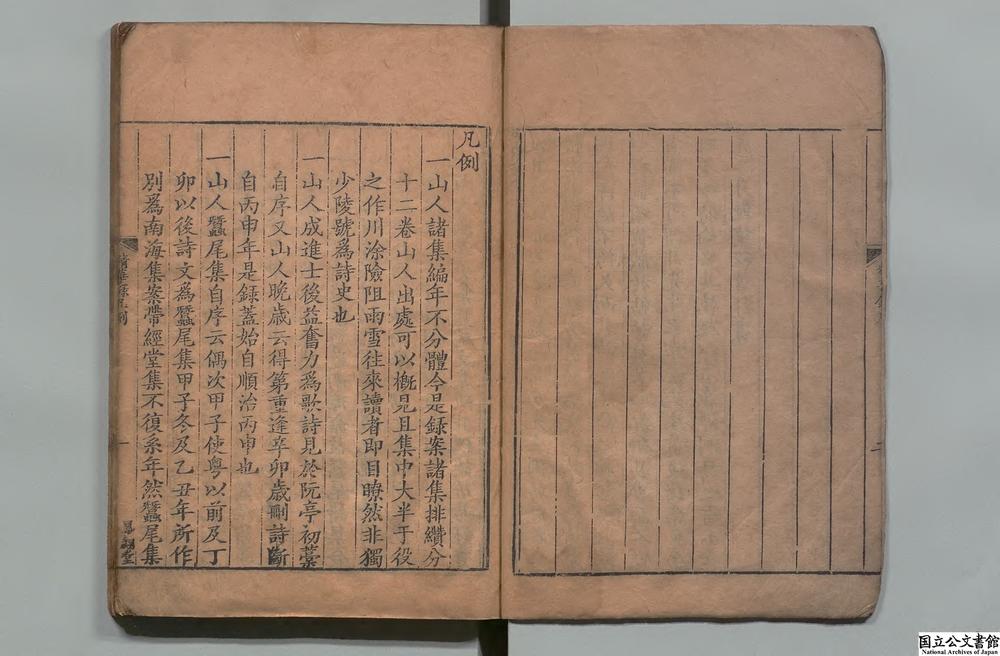 凡例
一山人諸集編年不分體今是錄案諸集排纘分
十二卷山人出處可以槪見且集中大半于役
之作川涂險阻雨雪往來讀者即目瞭然非獨
少陵號爲詩史也
一山人成進士後益奮力爲歌詩見於阮亭初藁
自序又山人晩歲云得第重逢辛卯歲刪詩斷
自丙申年是錄蓋始自順治丙申也
一山人蠶尾集自序云偶次甲子使粵以前及丁
卯以後詩文爲蠶尾集甲子冬及乙丑年所作
別爲南海集案帶經堂集不復系年然蠶尾集
一
国立公文書館
National Archives of Japan